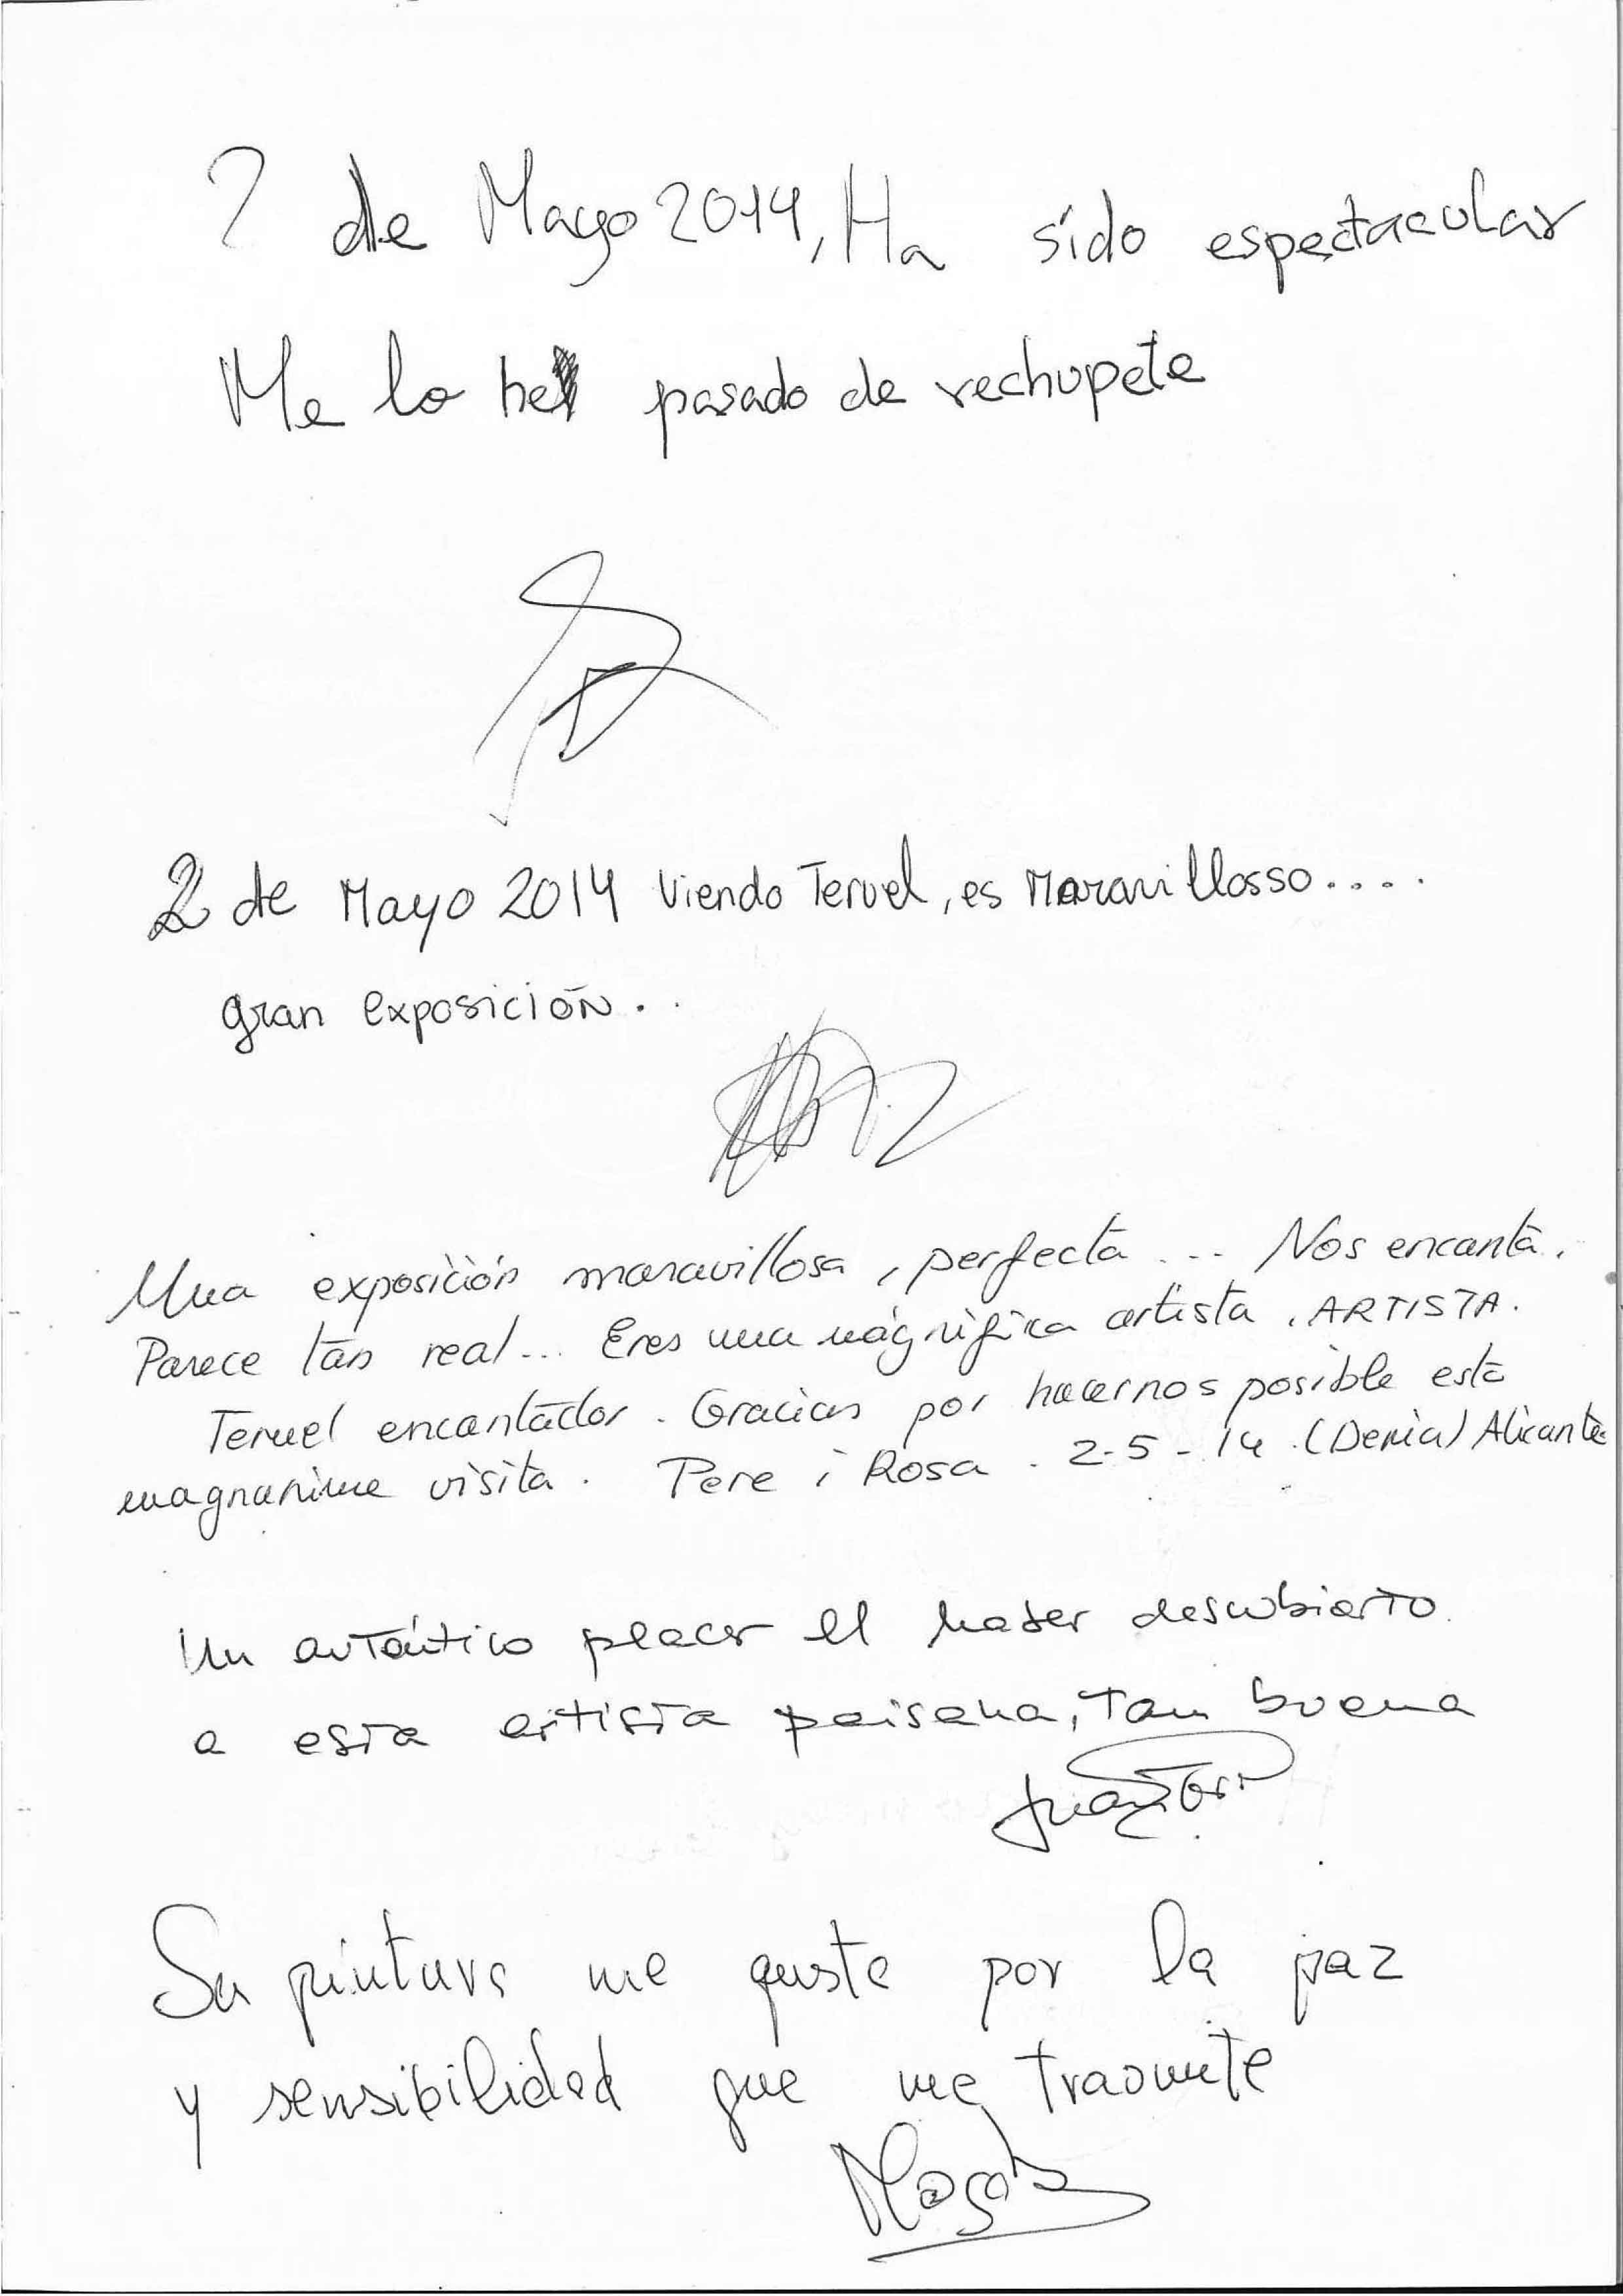 2 de Mayo 2014, Ha sido espectacular
Me lo he pasado de rechupete
2 de Mayo 2014 Viendo Teruel, es Maravillosso....
gran exposición..
Una exposición maravillosa, perfecta... Nos encanta.
Parece tan real... Eres una magnífica artista, ARTISTA.
Teruel encantador. Gracias por hacernos posible esta
magnanime visita. Pere i Rosa. 2-5-14. (Denia) Alicante
Un auténtico placer el haber descubierto
a esta artista paisana, tan buena
Su pintura me gusta por la paz
y sensibilidad que me trasmite